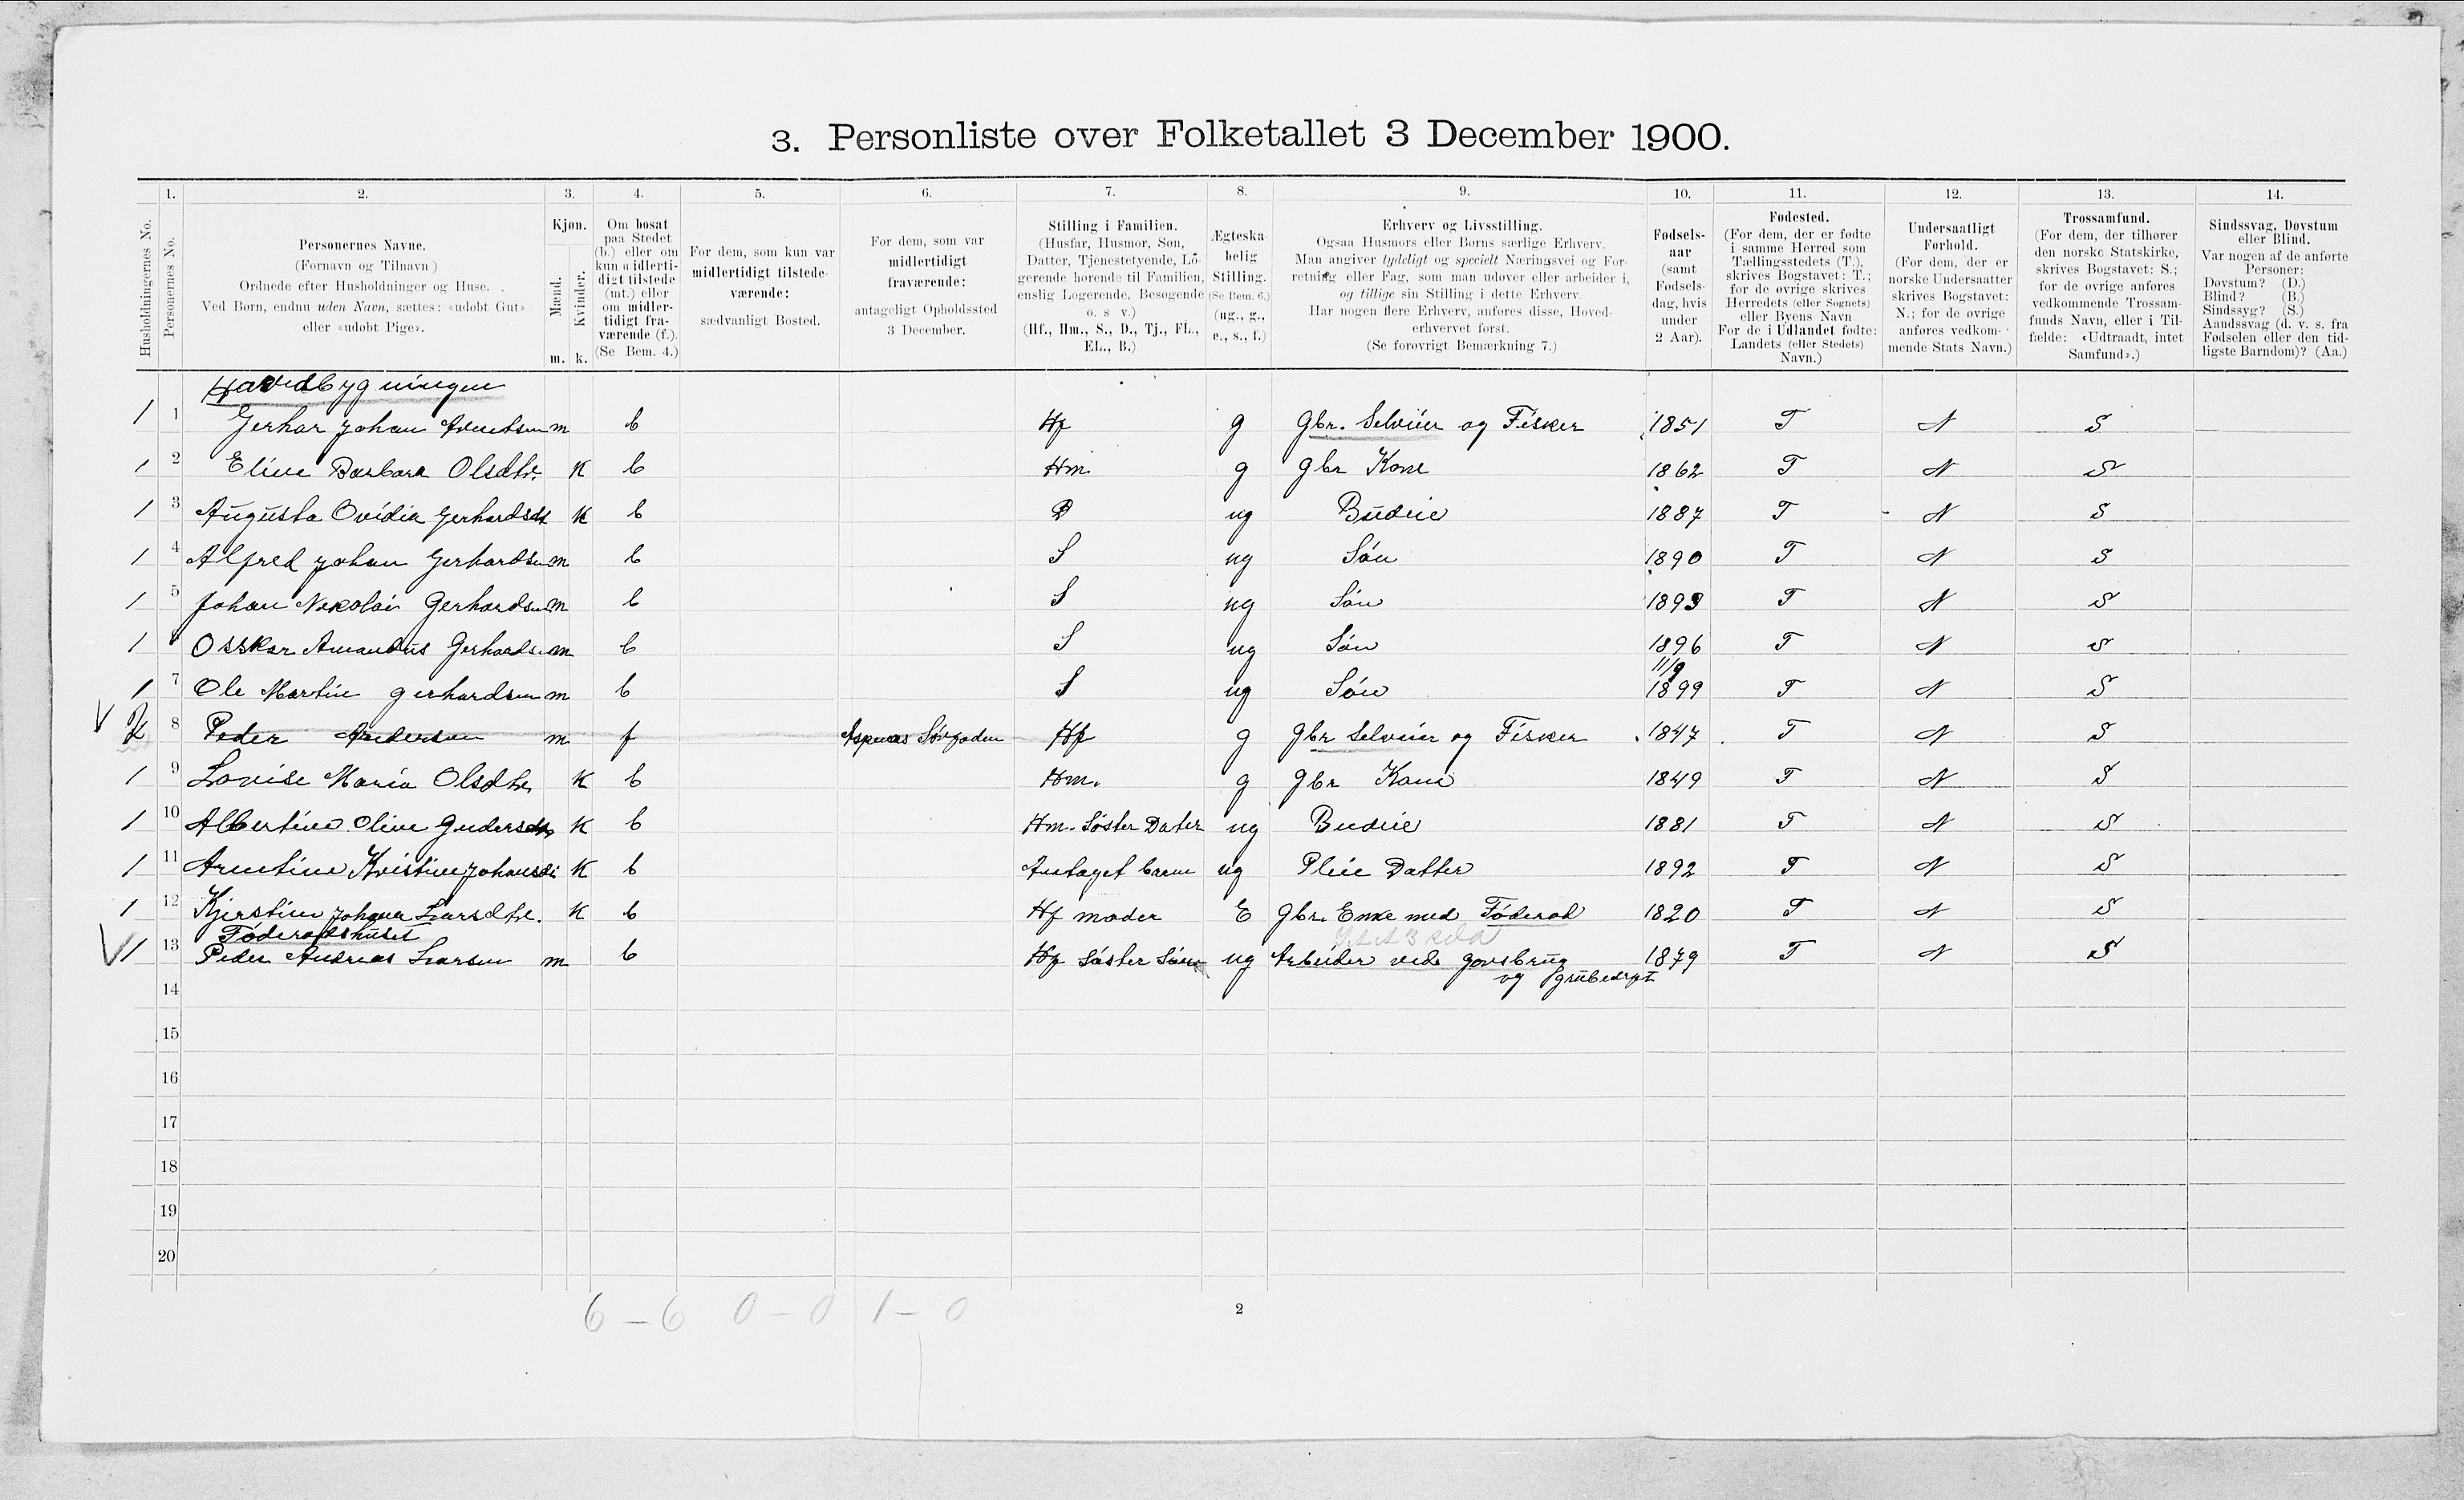 3. Personliste over Folketallet 3 December 1900.
1. 2. 3. 4. 5. 6. 7. 8. 9. 10. 11. 12. 13. 14.
Husholdningernes No.
Personernes No.
Personernes Navne.
(Fornavn og Tilnavn)
Ordnede efter Husholdninger og Huse.
Ved Børn, endnu uden Navn, sættes: «udøbt Gut»
eller «udøbt Pige».
Kjøn.
Mænd.
Kvinder.
m. k.
Om bosat
paa Stedet
(b.) eller om
kun midlerti-
digt tilstede
(mt.) eller
om midler-
tidigt fra-
værende (f.).
(Se Bem. 4.)
For dem, som kun var
midlertidigt tilstede-
værende:
sædvanligt Bosted.
For dem, som var
midlertidigt
fraværende:
antageligt Opholdssted
3 December.
Stilling i Familien.
(Husfar, Husmor, Søn,
Datter, Tjenestetyende, Lo-
gerende hørende til Familien,
enslig Logerende, Besøgende
o. s v.)
(Hf., Hm., S., D., Tj., FL.,
EL., B.)
Ægteska-
belig
Stilling.
(Se Bem. 6.)
(ug., g.,
e., s., f.)
Erhverv og Livsstilling.
Ogsaa Husmors eller Børns særlige Erhverv.
Man angiver tydeligt og specielt Næringsvei og For-
retning eller Fag, som man udøver eller arbeider i,
og tillige sin Stilling i dette Erhverv.
Har nogen flere Erhverv, anføres disse, Hoved-
erhvervet først.
(Se forøvrigt Bemærkning 7.)
Fødsels-
aar
(samt
Fødsels-
dag, hvis
under
2 Aar).
Fødested.
(For dem, der er fødte
i samme Herred som
Tællingsstedets (T.),
skrives Bogstavet: T.;
for de øvrige skrives
Herredets (eller Sognets)
eller Byens Navn
For de i Udlandet fødte:
Landets (eller Stedets)
Navn.)
Undersaatligt
Forhold.
(For dem, der er
norske Undersaatter
skrives Bogstavet:
N.; for de øvrige
anføres vedkom-
mende Stats Navn.)
Trossamfund.
(For dem, der tilhører
den norske Statskirke,
skrives Bogstavet: S.;
for de øvrige anføres
vedkommende Trossam-
funds Navn, eller i Til-
fælde: «Udtraadt, intet
Samfund».)
Sindssvag, Døvstum
eller Blind.
Var nogen af de anførte
Personer:
Døvstum? (D.)
Blind? (B.)
Sindssyg? (S.)
Aandssvag (d. v. s. fra
Fødselen eller den tid-
ligste Barndom)? (Aa.)
Havedbygningen
1 1 Gerhar Johan Arentsen m b Hf g gbr. Selveier og Fisker 1851 T N S
1 2 Eline Barbara Olsdtr. K b Hm g gbr Kone 1862 T N S
1 3 Augusta Ovidia Gerhardsdt K b D ug Budeie 1887 T N S
1 4 Alfred Johan Gerhardsen m b S ug Søn 1890 T N S
1 5 Johan Nekolai Gerhardsen m b S ug Søn 1893 T N S
1 6 Osskar Amandus Gerhards m b S ug Søn 1896 T N S
11/9
1 7 Ole Martin gerhardsen m b S ug Søn 1899 T N S
V 2 8 Peder Andersen m f Hf g gbr Selveier og Fisker 1847 T N S
1 9 Lovise Maria Olsdtr K b Hm. g gbr Kone 1849 T N S
1 10 Albertine Oline K b Hm. Søster Dater ug Budeie 1881 T N S
1 11 Arntine Kristine K b Antaget barn ug Pleie Datter 1892 T N S
1 12 Kjerstine Johana Larsdtr. K b Hf moder E gbr. Enke med Føderad 1820 T N S
Føderadshuset
V 1 13 Peder Andreas Larsen m b Hf Søster Søn ug Arbeider ved govsbrug 1879 T N S
og
14
15
16
17
18
19
20
6 – 6 0 – 0 1 – 0
2